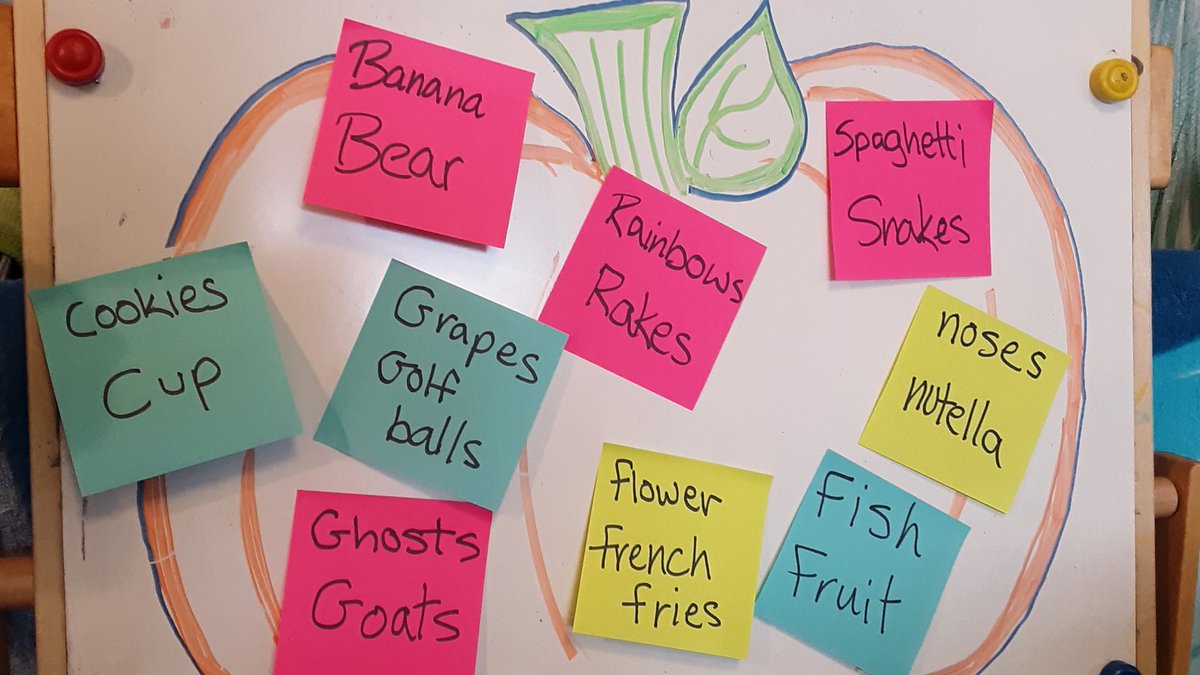 Banana
Bear
Spaghetti
Snakes
Rainbows
Rakes
Cookies
Cup
Grapes
Golf
balls
noses
nutella
flower
french
fries
Fish
Fruit
Ghosts
Goats